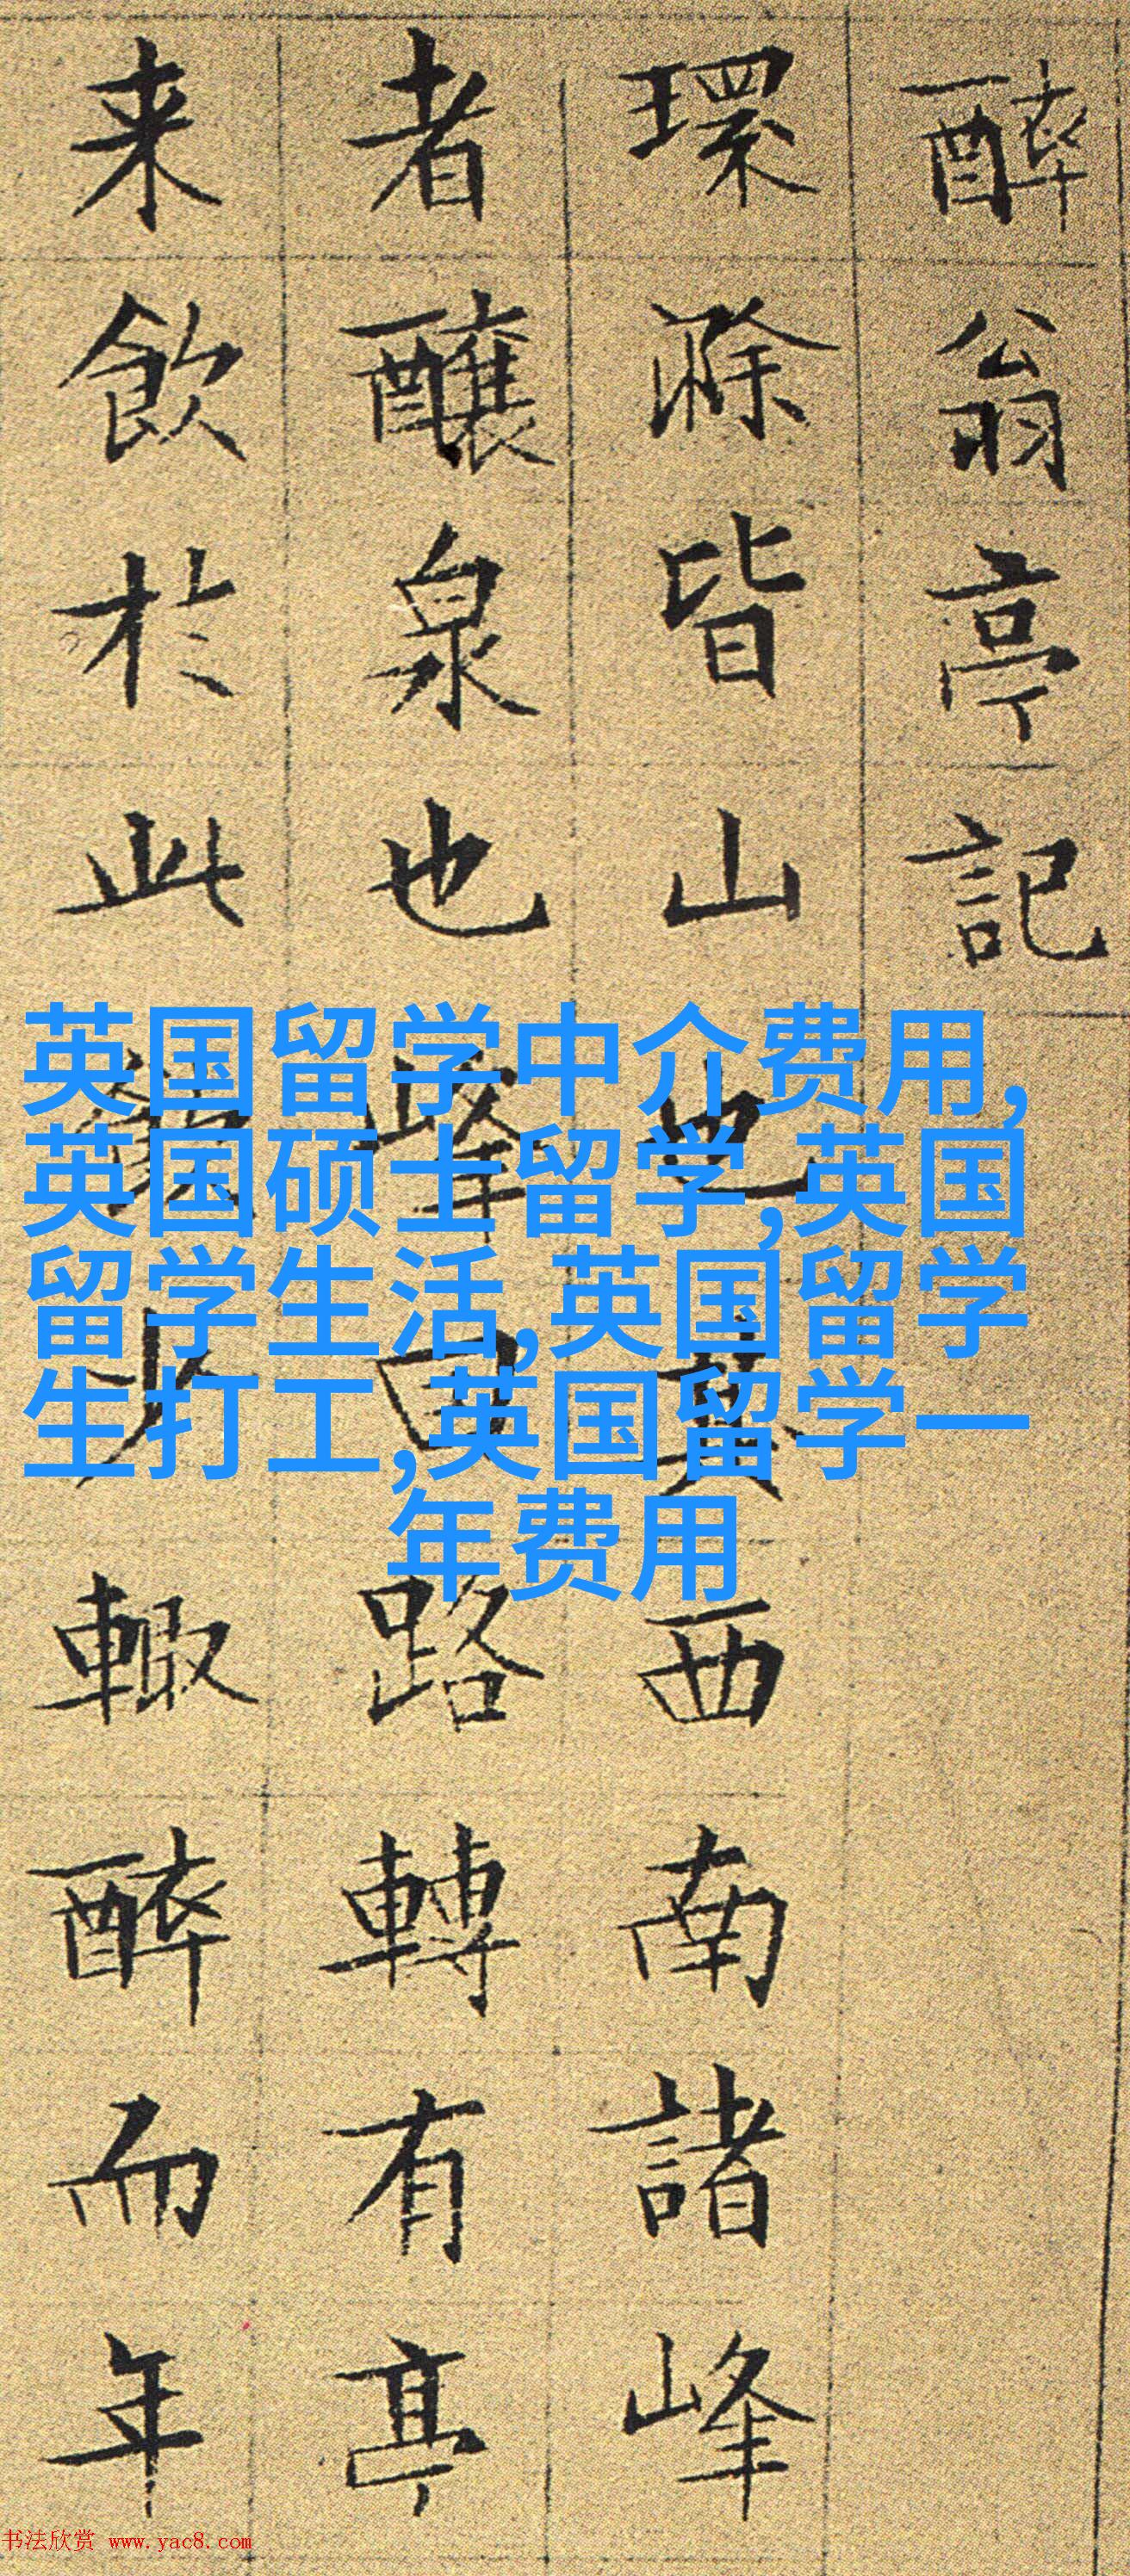 醉翁亭記
環滁皆山也其西南諸峰
者釀泉也峰回路轉有亭
来飲於此少輒醉而年
英国留学中介费用,
英国硕士留学,英国
留学生活,英国留学
生打工,英国留学一
年费用
书法欣赏 www.yac8.com